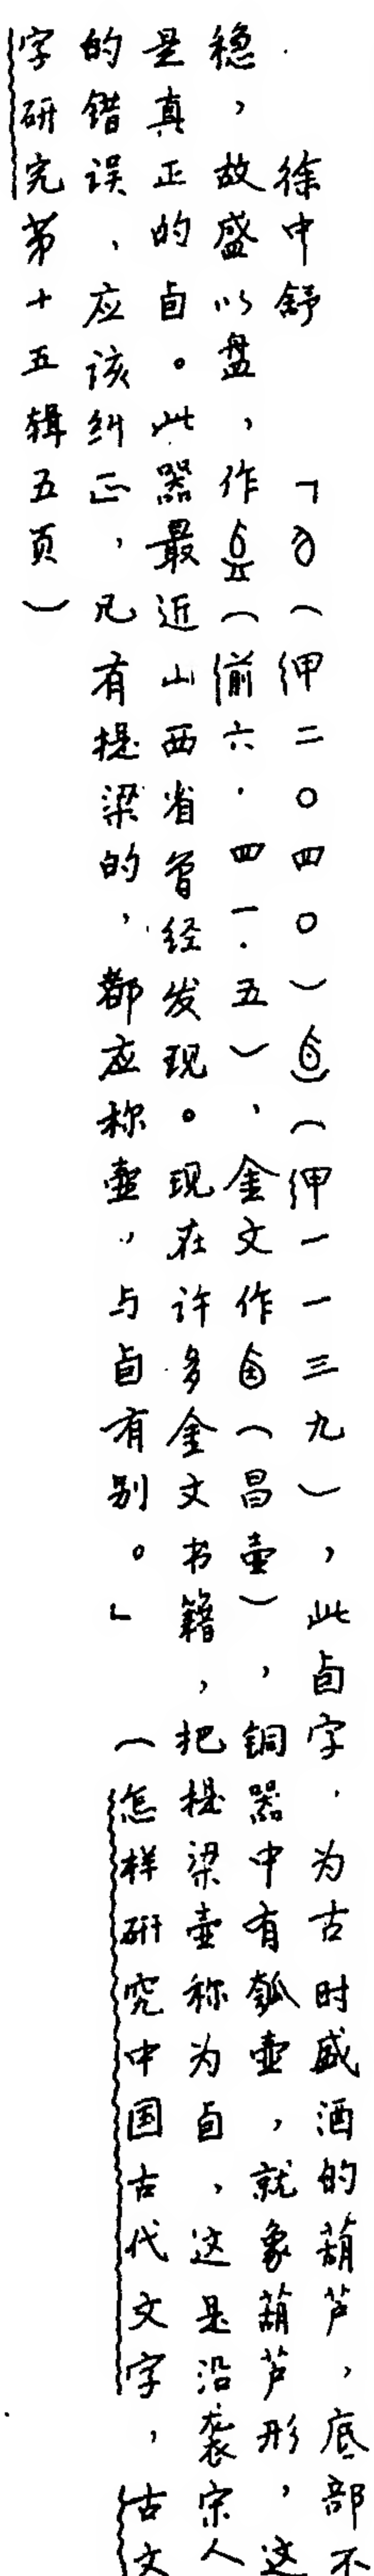 徐中舒 「（甲二〇四〇）（甲一一三九），此卣字，为古时盛酒的葫芦，底部不
稳，故盛以盘，作（前六·四一·五），金文作（昌壶），铜器中有瓠壶，就象葫芦形，这
是真正的卣。此器最近山西省曾经发现。现在许多金文书籍，把提梁壶称为卣，这是沿袭宋人
的错误，应该纠正，凡有提梁的，都应称壶，与卣有别。」（怎样研究中国古代文字，古文
字研究第十五辑五页）